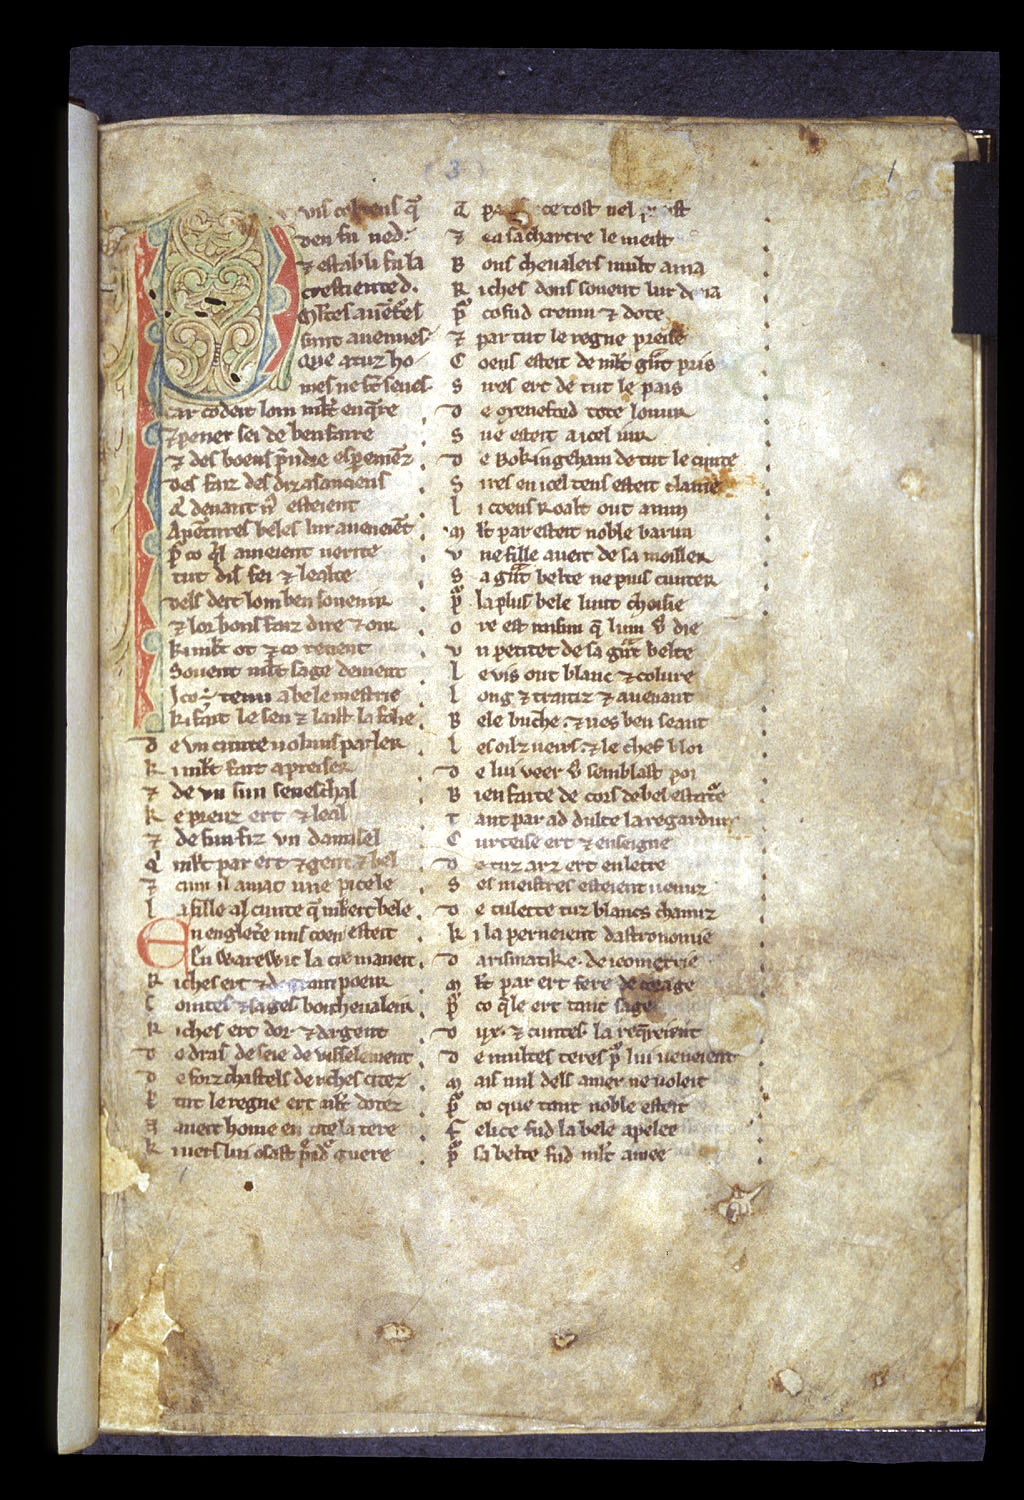 3
1
Puis cel tens q̄
deu fu ned.
⁊ establi fu la
crestiente d.
sunt auenues
Que a tuz ho
mes ne st̄ seues
ar co deit lom mlt̄ enq̄re
⁊ pener sei de ben faire
⁊ des boens p̄ndre
des faiz des
q̄ deuant n̄ esteient
Auentures beles lur aueneiēt
p̄ co q̄l ameient uerite
tut dis fei ⁊ lealte
dels deit lom ben souenir
⁊ lor bons faiz dire ⁊ oir
ki mlt̄ ot ⁊ co retient
Souent mlt̄ sage deuient
Ico tenu a bele mestrie
ki fait le sen ⁊ laist la folie
d e vn cunte uoluns parler
k i mlt̄ fait a preiser
⁊ de vn sun seneschal
k e preuz ert ⁊ leal
⁊ de sun fiz vn damisel
Q i mlt̄ par ert ⁊ gent ⁊ bel
⁊ cum il amat une pucele
l a fille al cunte q̄ mlt̄ ert bele
En engletere uns coens esteit
En Warewic la cite maneit
R iches ert ⁊ de grant poeir
C ointes ⁊ sages bon cheualeir
R iches ert dor ⁊ dargent
D e dras de seie de uesselement
D e forz chastels de riches citez
P tut le regne ert mlt̄ dotez
N aueit home en tute la tere
K i uers lui osast p̄ndre guere
Q
⁊ en sa chartre le meist
B ons cheualers mult ama
R iches dons souent lur dona
p̄ co fud cremu ⁊ dote
⁊ par tut le regne preise
C oens esteit de mlt̄ gnt̄ pris
S ires ert de tut le pais
D e oxeneford tote lonur
S ue esteit a icel iur
D e Bokingeham de tut le cunte
S ires en icel tens esteit clame
l i coens Roalt out anun
M lt̄ par esteit noble barun
v ne fille aueit de sa moiller
S a gnt̄ belte ne puis cunter
p̄ la plus bele luint choisie
O re est raisun q̄ lum v̄ die
v n petitet de sa gnt̄ belte
l e vis out blanc ⁊ colure
l ong ⁊ traitiz ⁊ auenant
B ele buche. ⁊ nes ben seant
l es oilz ueirs. ⁊ le chef bloi
D e lui veer v̄ semblast poi
B ien faite de cors de bel estature
T ant par ad dulce la regardure
C urteise ert ⁊ enseigne
D e tuz arz ert enletre
S es meistres esteient uenuz
D e tulette tuz blancs chanuz
K i la perneient dastronomie
D arismatike. de ieometrie
M lt̄ par ert fere de corage
p̄ co q̄le ert tant sage
D ux. ⁊ cuntes. la req̄reient
D e multes teres p̄ lui ueneient
M ais nul dels amer ne uoleit
p̄ co que tant noble esteit
F elice fud la bele apelee
p̄ sa belte fud mlt̄ amee